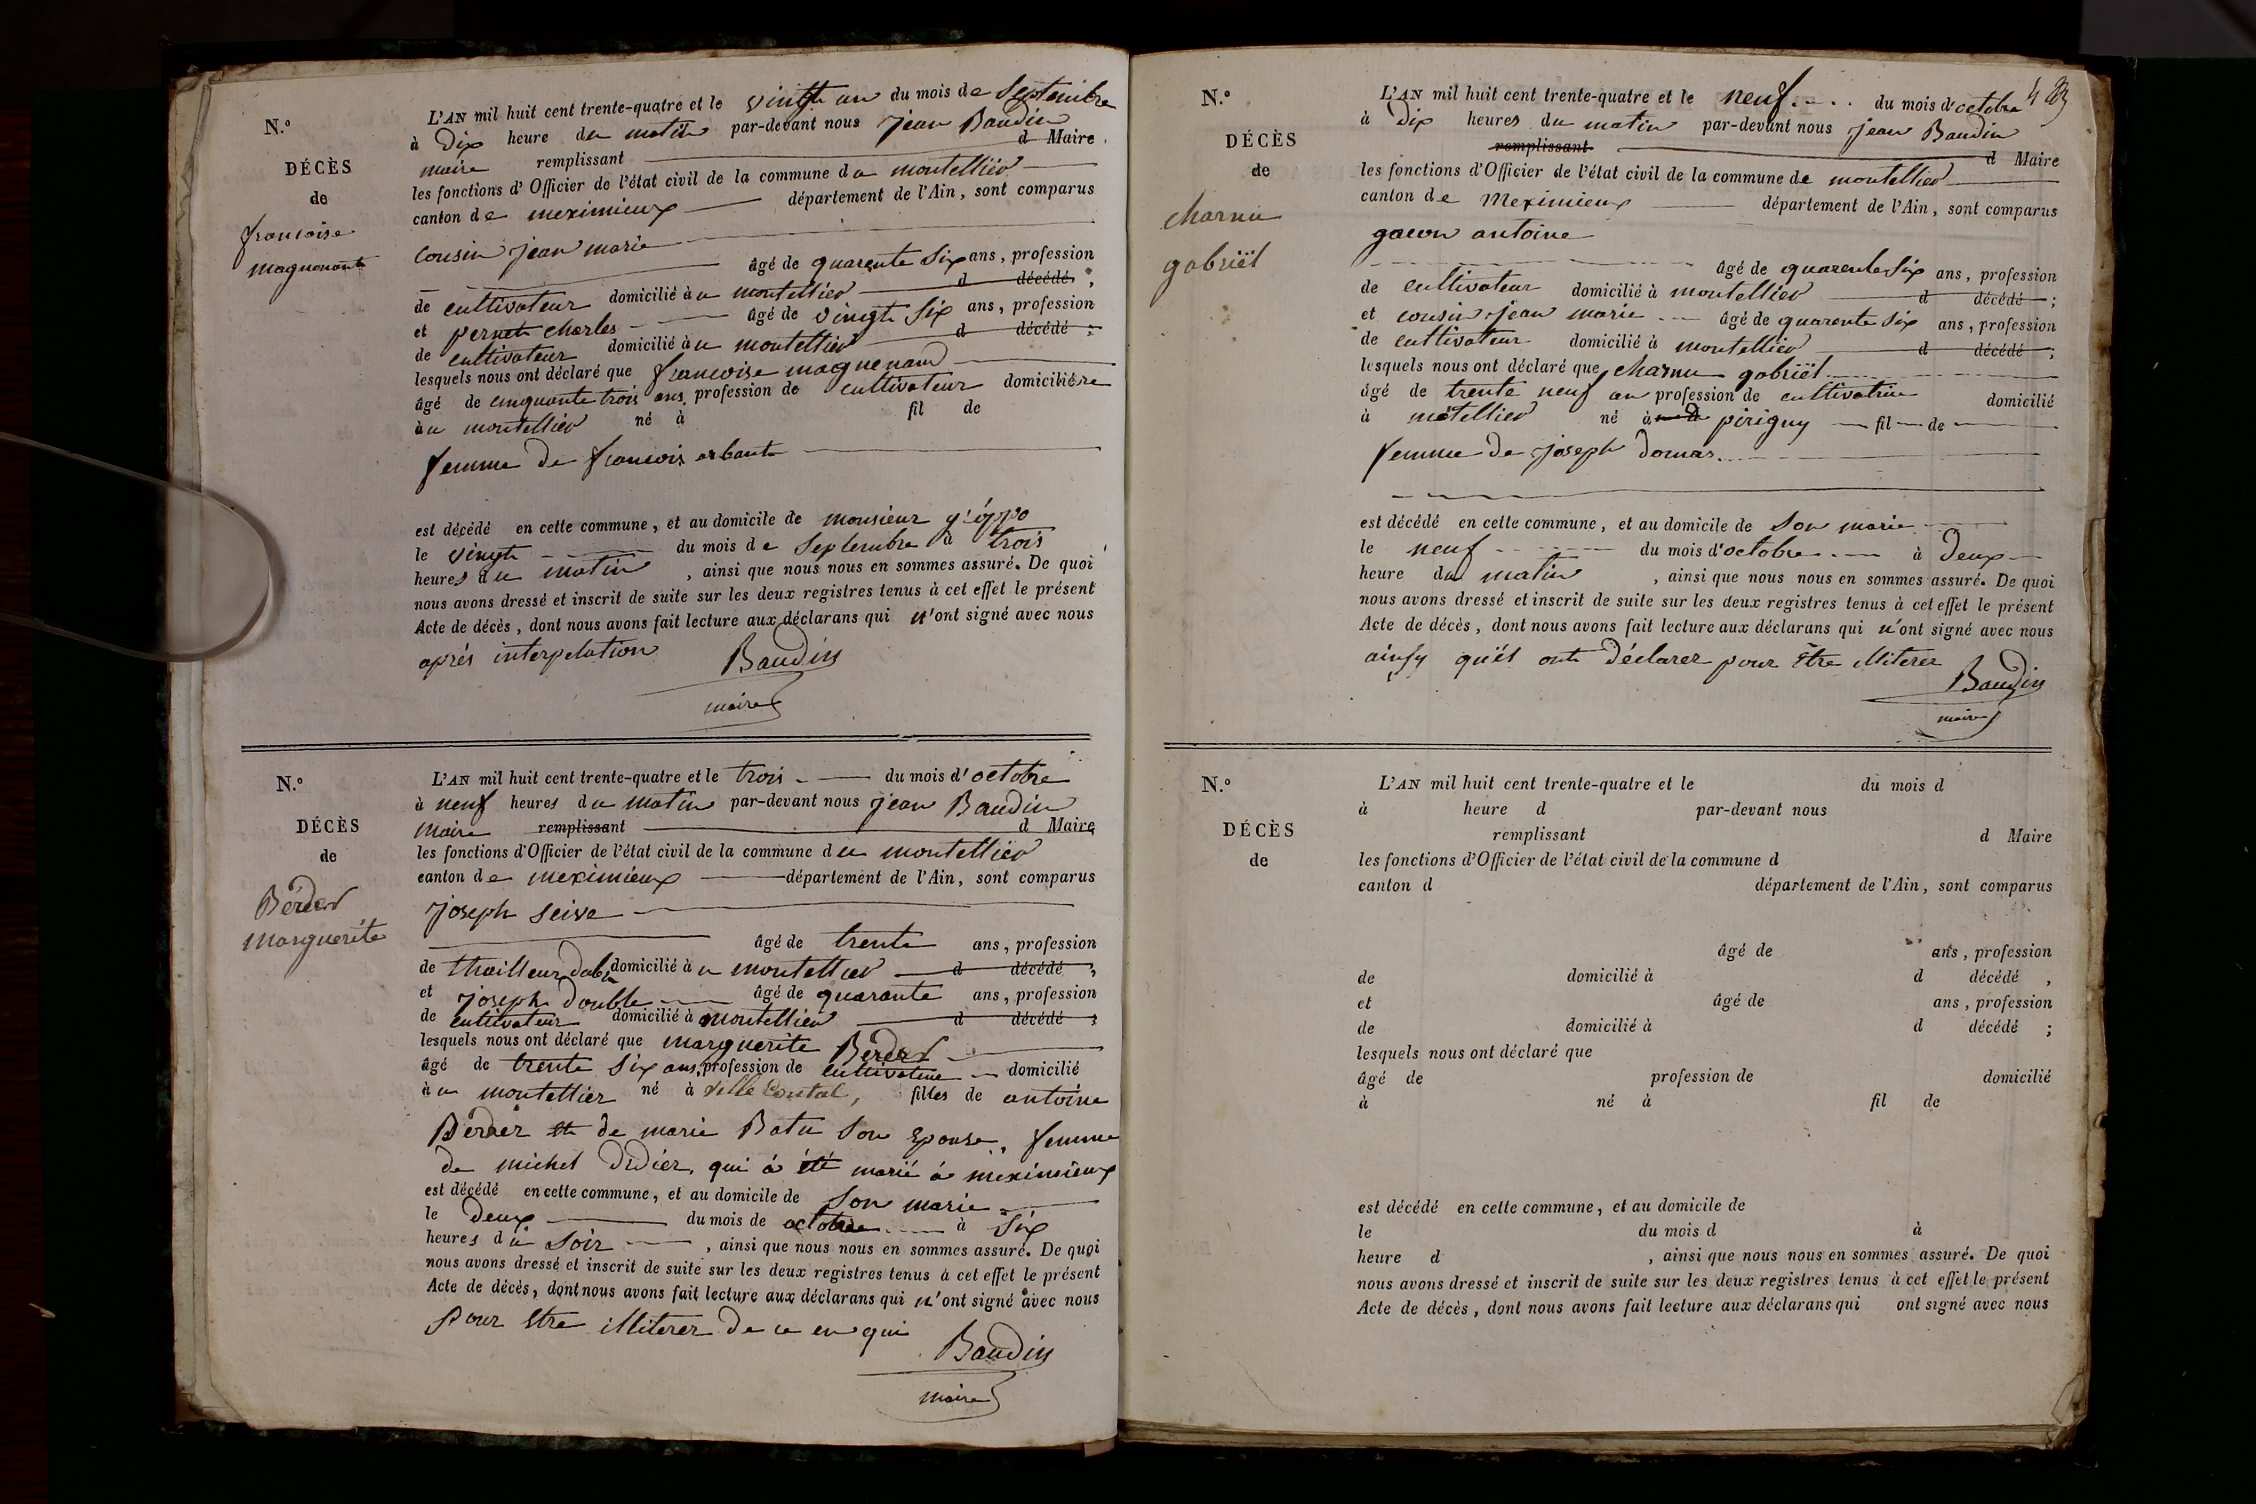 N.º
DÉCÈS
de
francoise
magnenant
L'AN mil huit cent trente-quatre et le vingt un du mois de Septembre
à Dix heure du matin par-devant nous Jean Baudin
maire remplissant d Maire
les fonctions d'Officier de l'état civil de la commune du montellier
canton de meximieux département de l'Ain, sont comparus
cousin jean marie
âgé de quarente Six ans, profession
de cultivateur domicilié à u montellier d décédé ;
et pernet charles âgé de vingt Six ans, profession
de cultivateur domicilié à u montellier d décédé ;
lesquels nous ont déclaré que francoise magnenant
âgé de cinquante trois ans profession de cultivateur domiciliére
à u montellier né à fil de
femme de francois arbant
est décédé en cette commune, et au domicile de monsieur
le vingt du mois de Septembre à trois
heures du matin , ainsi que nous nous en sommes assuré. De quoi
nous avons dressé et inscrit de suite sur les deux registres tenus à cet effet le présent
Acte de décès, dont nous avons fait lecture aux déclarans qui n'ont signé avec nous
aprés interpelation Baudin
maire
N.º
DÉCÈS
de
Bérder
marguerite
L'AN mil huit cent trente-quatre et le trois du mois d'octobre
à neuf heures du matin par-devant nous jean Baudin
maire remplissant d Maire
les fonctions d'Officier de l'état civil de la commune du montellier
canton de meximieux département de l'Ain, sont comparus
joseph seive
âgé de trente ans, profession
de thailleur dab domicilié à u montellier d décédé ;
et joseph double âgé de quarante ans, profession
de cultivateur domicilié à montellier d décédé ;
lesquels nous ont déclaré que marguerite Bérder
âgé de trente Six ans, profession de cultivatrice domicilié
à u montellier né à fills de antoine
Berder et de marie Batu Son Epouse, femme
de michel Didier, qui á été marié á meximieux
est décédé en cette commune, et au domicile de Son marie
le deux du mois de octobre à Six
heures du Soir , ainsi que nous nous en sommes assuré. De quoi
nous avons dressé et inscrit de suite sur les deux registres tenus à cet effet le présent
Acte de décès, dont nous avons fait lecture aux déclarans qui n'ont signé avec nous
Pour Etre illiterer de ce en qui
Baudin
maire
N.º
DÉCÈS
de
charnu
gabriël
L'AN mil huit cent trente-quatre et le neuf du mois d'octobre
à Dix heures du matin par-devant nous jean Baudin
remplissant d Maire
les fonctions d'Officier de l'état civil de la commune de montellier
canton de Meximieux département de l'Ain, sont comparus
gacon antoine
âgé de quarente Six ans, profession
de cultivateur domicilié à montellier d décédé ;
et cousin jean marie âgé de quarente Six ans, profession
de cultivateur domicilié à montellier d décédé ;
lesquels nous ont déclaré que charnu gabriël
âgé de trente neuf an profession de cultivatrice domicilié
à motellier né à pirigny fil de
femme de joseph domas
est décédé en cette commune, et au domicile de Son marie
le neuf du mois d'octobre à deux
heure du matin , ainsi que nous nous en sommes assuré. De quoi
nous avons dressé et inscrit de suite sur les deux registres tenus à cet effet le présent
Acte de décès, dont nous avons fait lecture aux déclarans qui n'ont signé avec nous
ainsy qu'ét ont déclarer pour être illiterer
Baudin
maire
N.º
DÉCÈS
de
L'AN mil huit cent trente-quatre et le du mois d
à heure d par-devant nous
remplissant d Maire
les fonctions d'Officier de l'état civil de la commune d
canton d département de l'Ain, sont comparus
âgé de ans, profession
de domicilié à d décédé ,
et âgé de ans, profession
de domicilié à d décédé ;
lesquels nous ont déclaré que
âgé de profession de domicilié
à né à fil de
est décédé en cette commune, et au domicile de
le du mois d à
heure d , ainsi que nous nous en sommes assuré. De quoi
nous avons dressé et inscrit de suite sur les deux registres tenus à cet effet le présent
Acte de décès, dont nous avons fait lecture aux déclarans qui ont signé avec nous